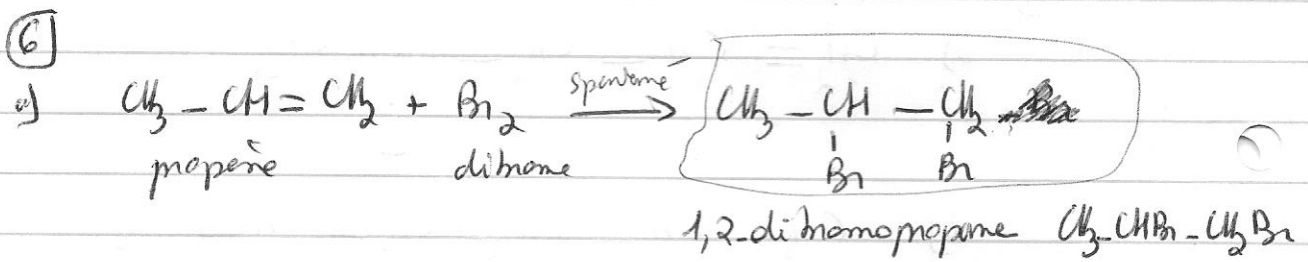 6
a) CH3 – CH = CH2 + Br2 spontané → CH3 – CH – CH2
propène dibrome Br Br
1,2-dibromopropane CH3-CHBr-CH2Br